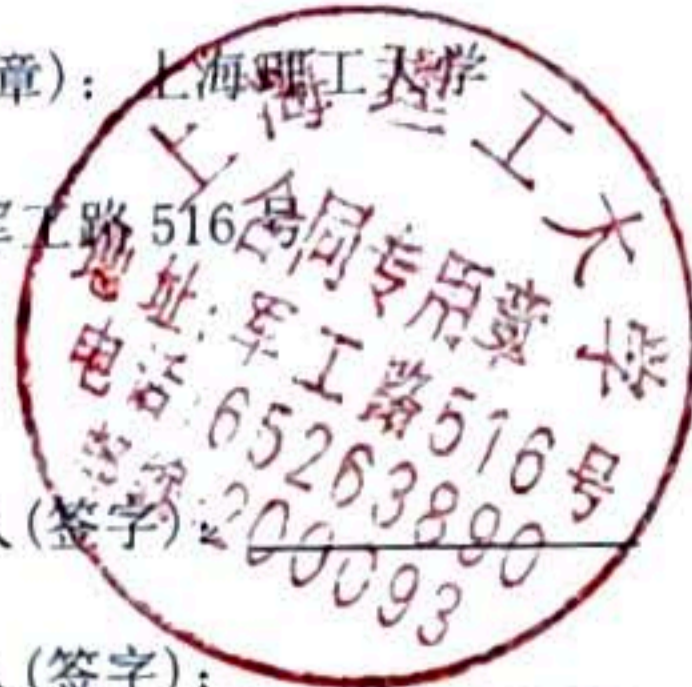 章): 上海理工大学
军工路 516 号
人(签字):
(签字):
上海理工大学
合同专用章
地址:军工路516号
电话:65263890
邮编:200093